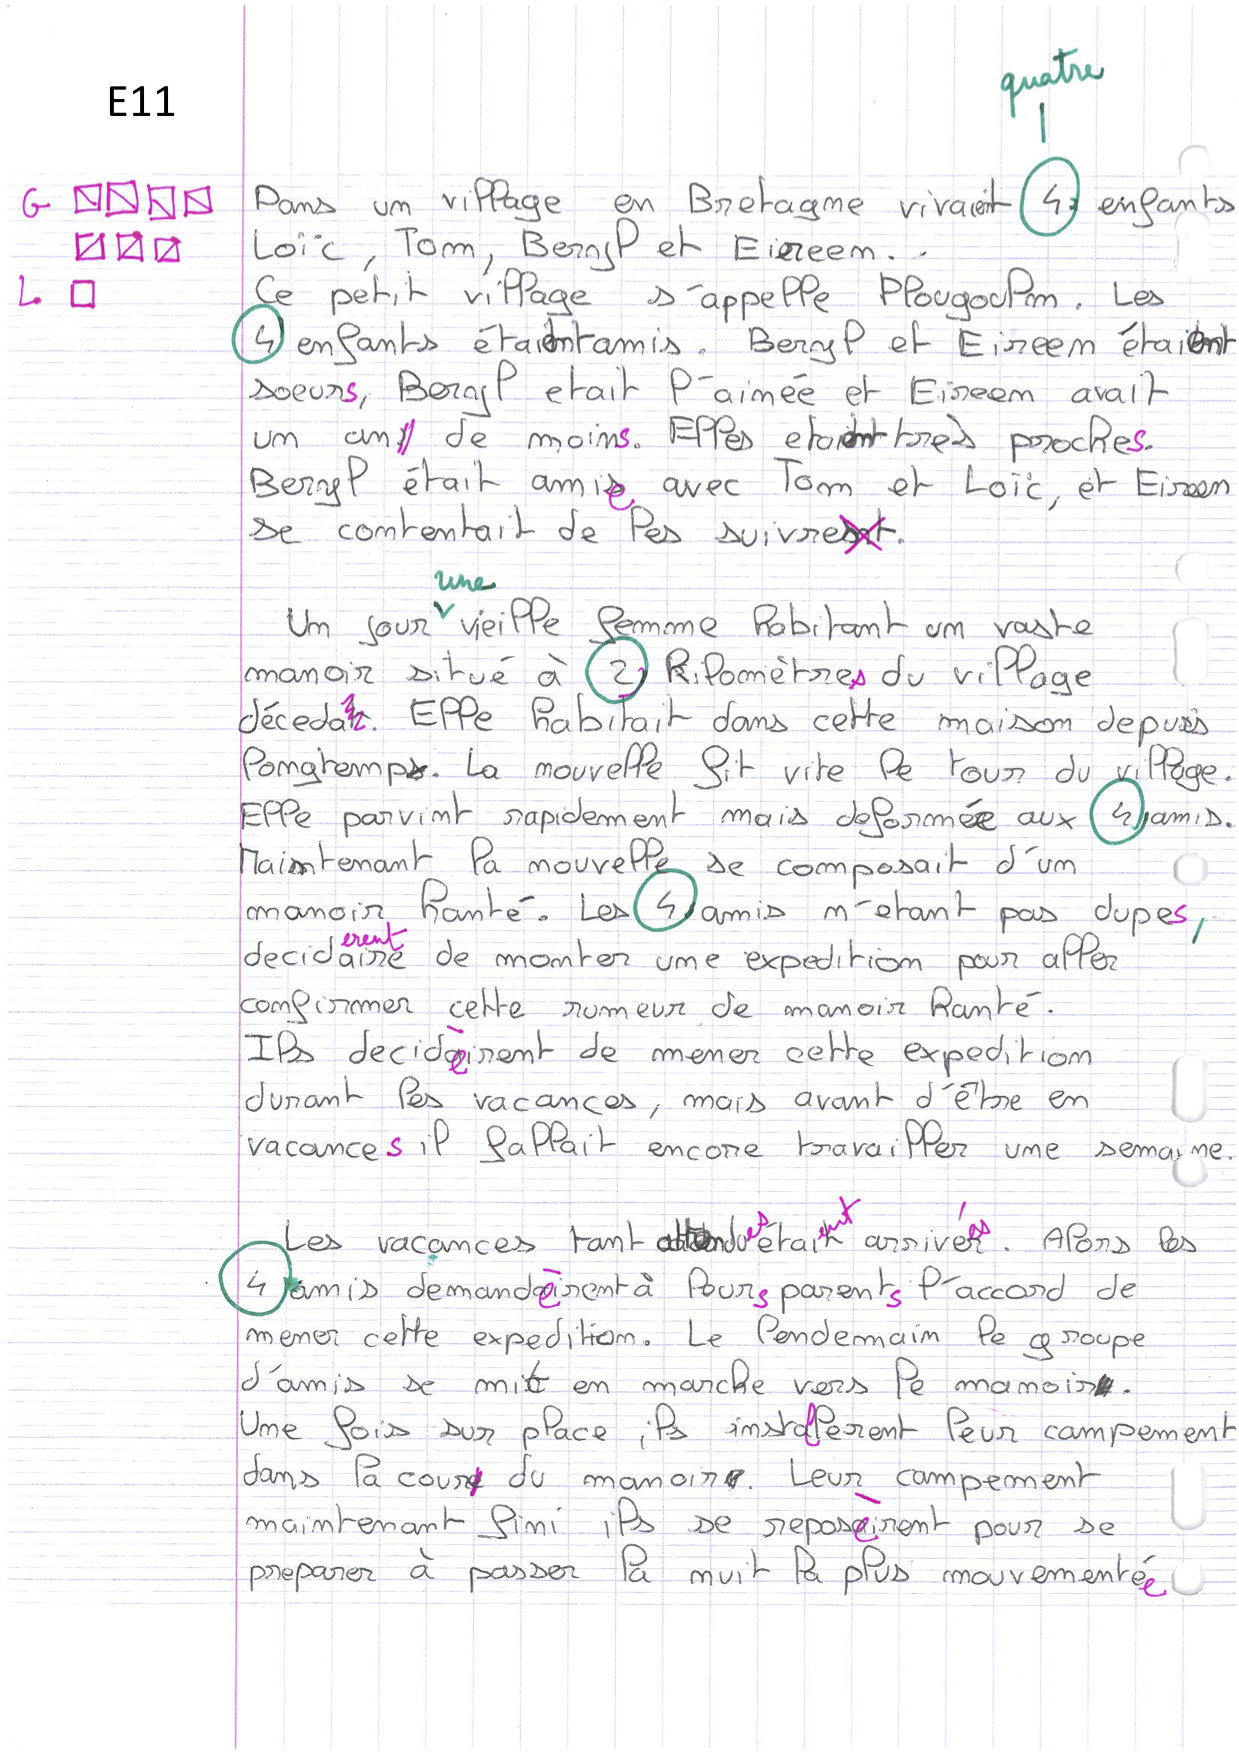 quatre
E11
G Dans un village en Bretagne vivaient 4 enfants
Loïc, Tom, Beryl et Eireem..
L. Ce petit village s'appelle Plougoulm. Les
4 enfants étaient amis. Beryl et Eireem étaient
soeurs, Beryl etait l'aimée et Eireem avait
un an de moins. Elles etaient très proches.
Beryl était amie avec Tom et Loïc, et Eireem
se contentait de les suivre.
une
Un jour vieille femme habitant un vaste
manoir situé à 2 kilomètres du village
déceda. Elle habitait dans cette maison depuis
longtemps. La nouvelle fit vite le tour du village.
Elle parvint rapidement mais deformée aux 4 amis.
Maintenant la nouvelle se composait d'un
manoir hanté. Les 4 amis n'etant pas dupes,
erent
decidaire de monter une expedition pour aller
confirmer cette rumeur de manoir hanté.
Ils decidèrent de mener cette expedition
durant les vacances, mais avant d'être en
vacances il fallait encore travailler une semaine.
Les vacances tant attendues étaient arrivées. Alors les
4 amis demandèrent à leurs parents l'accord de
mener cette expedition. Le lendemain le groupe
d'amis se mit en marche vers le manoir.
Une fois sur place ils installerent leur campement
dans la cour du manoir. Leur campement
maintenant fini ils se reposèrent pour se
preparer à passer la nuit la plus mouvementée